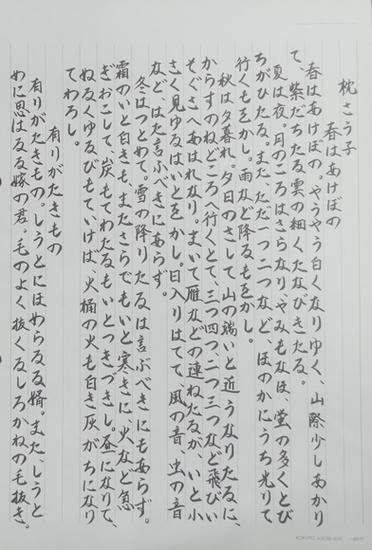 枕さう子
春はあけぼの
春はあけぼの。やうやう白くなりゆく、山際少しあかり
て、紫だちたる雲の細くたなびきたる。
夏は夜。月のころはさらなり、やみもなほ、蛍の多くとび
ちがひたる。また、ただ一つ二つなど、ほのかにうち光りて
行くもをかし。雨など降るもをかし。
秋は夕暮れ。夕日のさして、山の端いと近うなりたるに、
からすのねどころへ行くとて、三つ四つ、二つ三つなど飛びい
そぐさへあはれなり。まいて雁などの連ねたるが、いと小
さく見ゆるはいとをかし。日入りはてて、風の音、虫の音
など、はた言ふべきにあらず。
冬はつとめて。雪の降りたるは言ふべきにもあらず。
霜のいと白きも、またさらでもいと寒きに、火など急
ぎおこして、炭もてわたるもいとつきづきし。昼になりて、
ぬるくゆるびもていけば、火桶の火も白き灰がちになり
てわろし。
有りがたきもの
有りがたきもの。しうとにほめらるる婿。また、しうと
めに思はるる嫁の君。毛のよく抜くるしろかねの毛抜き、